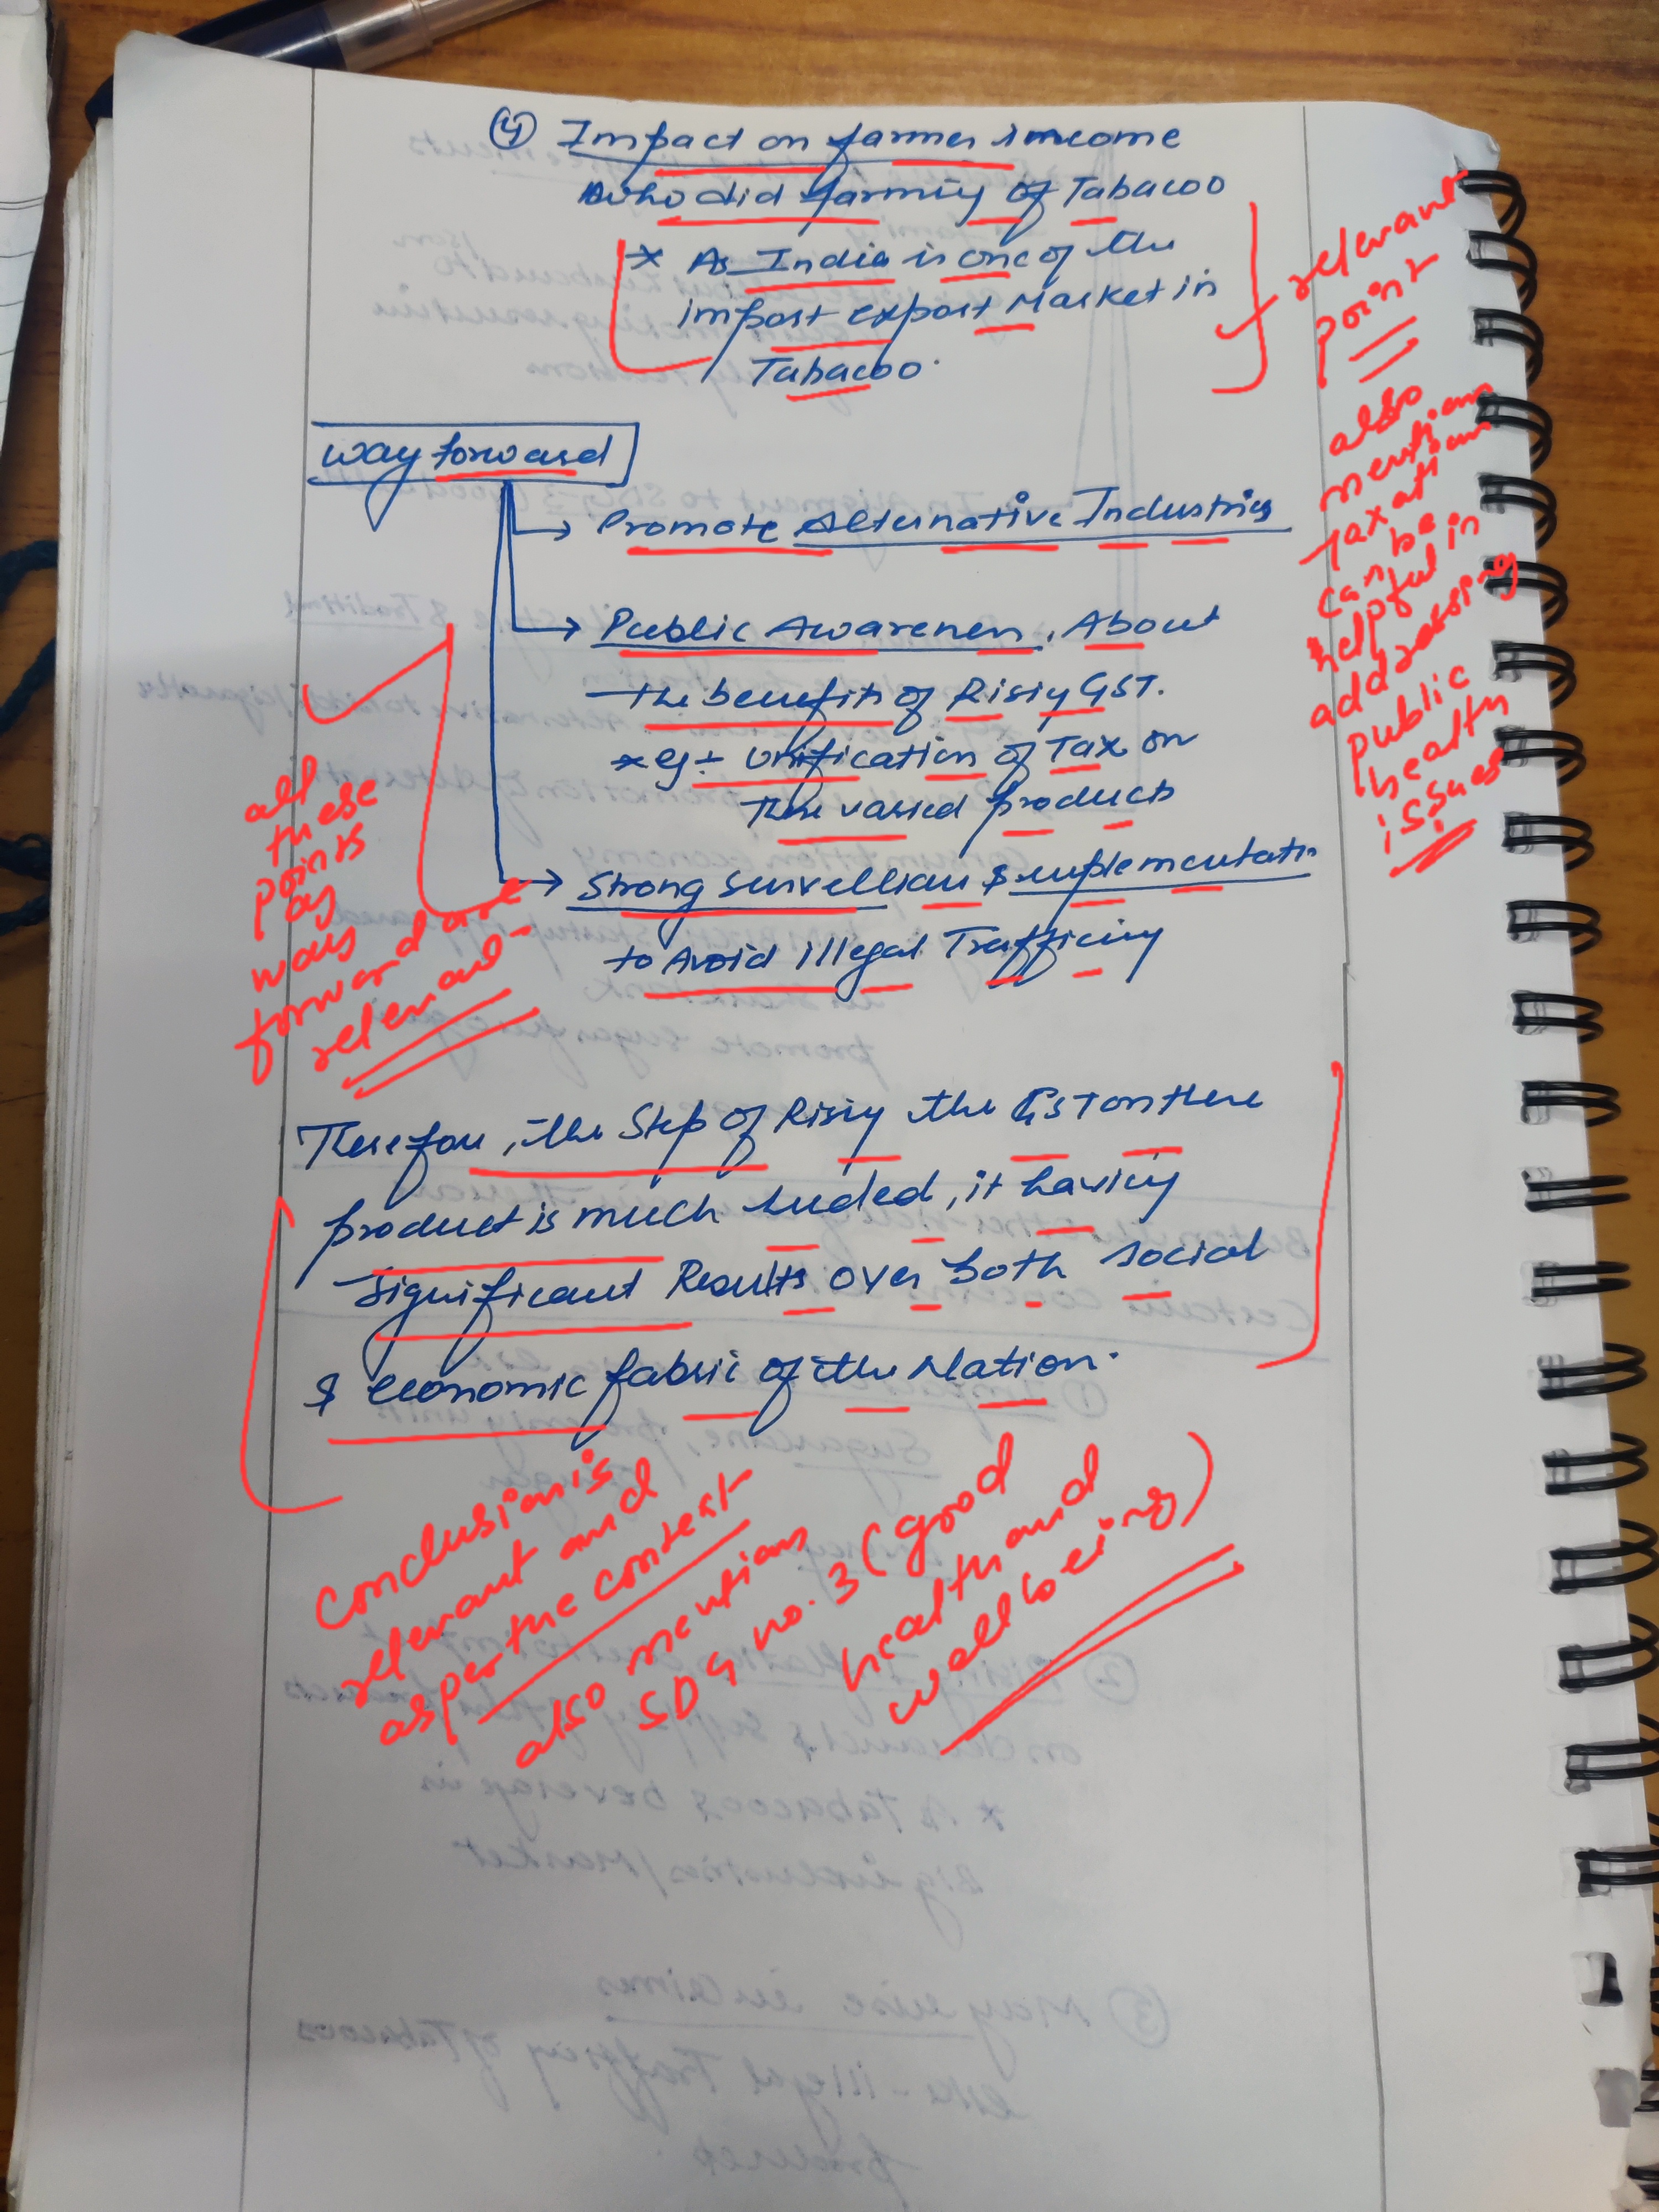 ④ Impact on farmer income
who did farming of Tabacoo
* As India is one of the
import export Market in
Tabacoo.
relevant
point
also
mention
taxation
can be
helpful in
addressing
public
health
issues
way forward
→ Promote Alternative Industries
→ Public Awareness, About
the benefits of Rising GST.
* eg:- Unification of Tax on
these varied products
→ Strong Survellian & implementatn
to Avoid illegal Trafficing
all
these
points
way
forward are
relevant
Therefore, the Step of Rising the GST on these
product is much needed, it having
Significant Results over both social
& economic fabric of the Nation.
conclusion is
relevant and
as per the context
also mentions
SDG no. 3 (good
health and
well being)